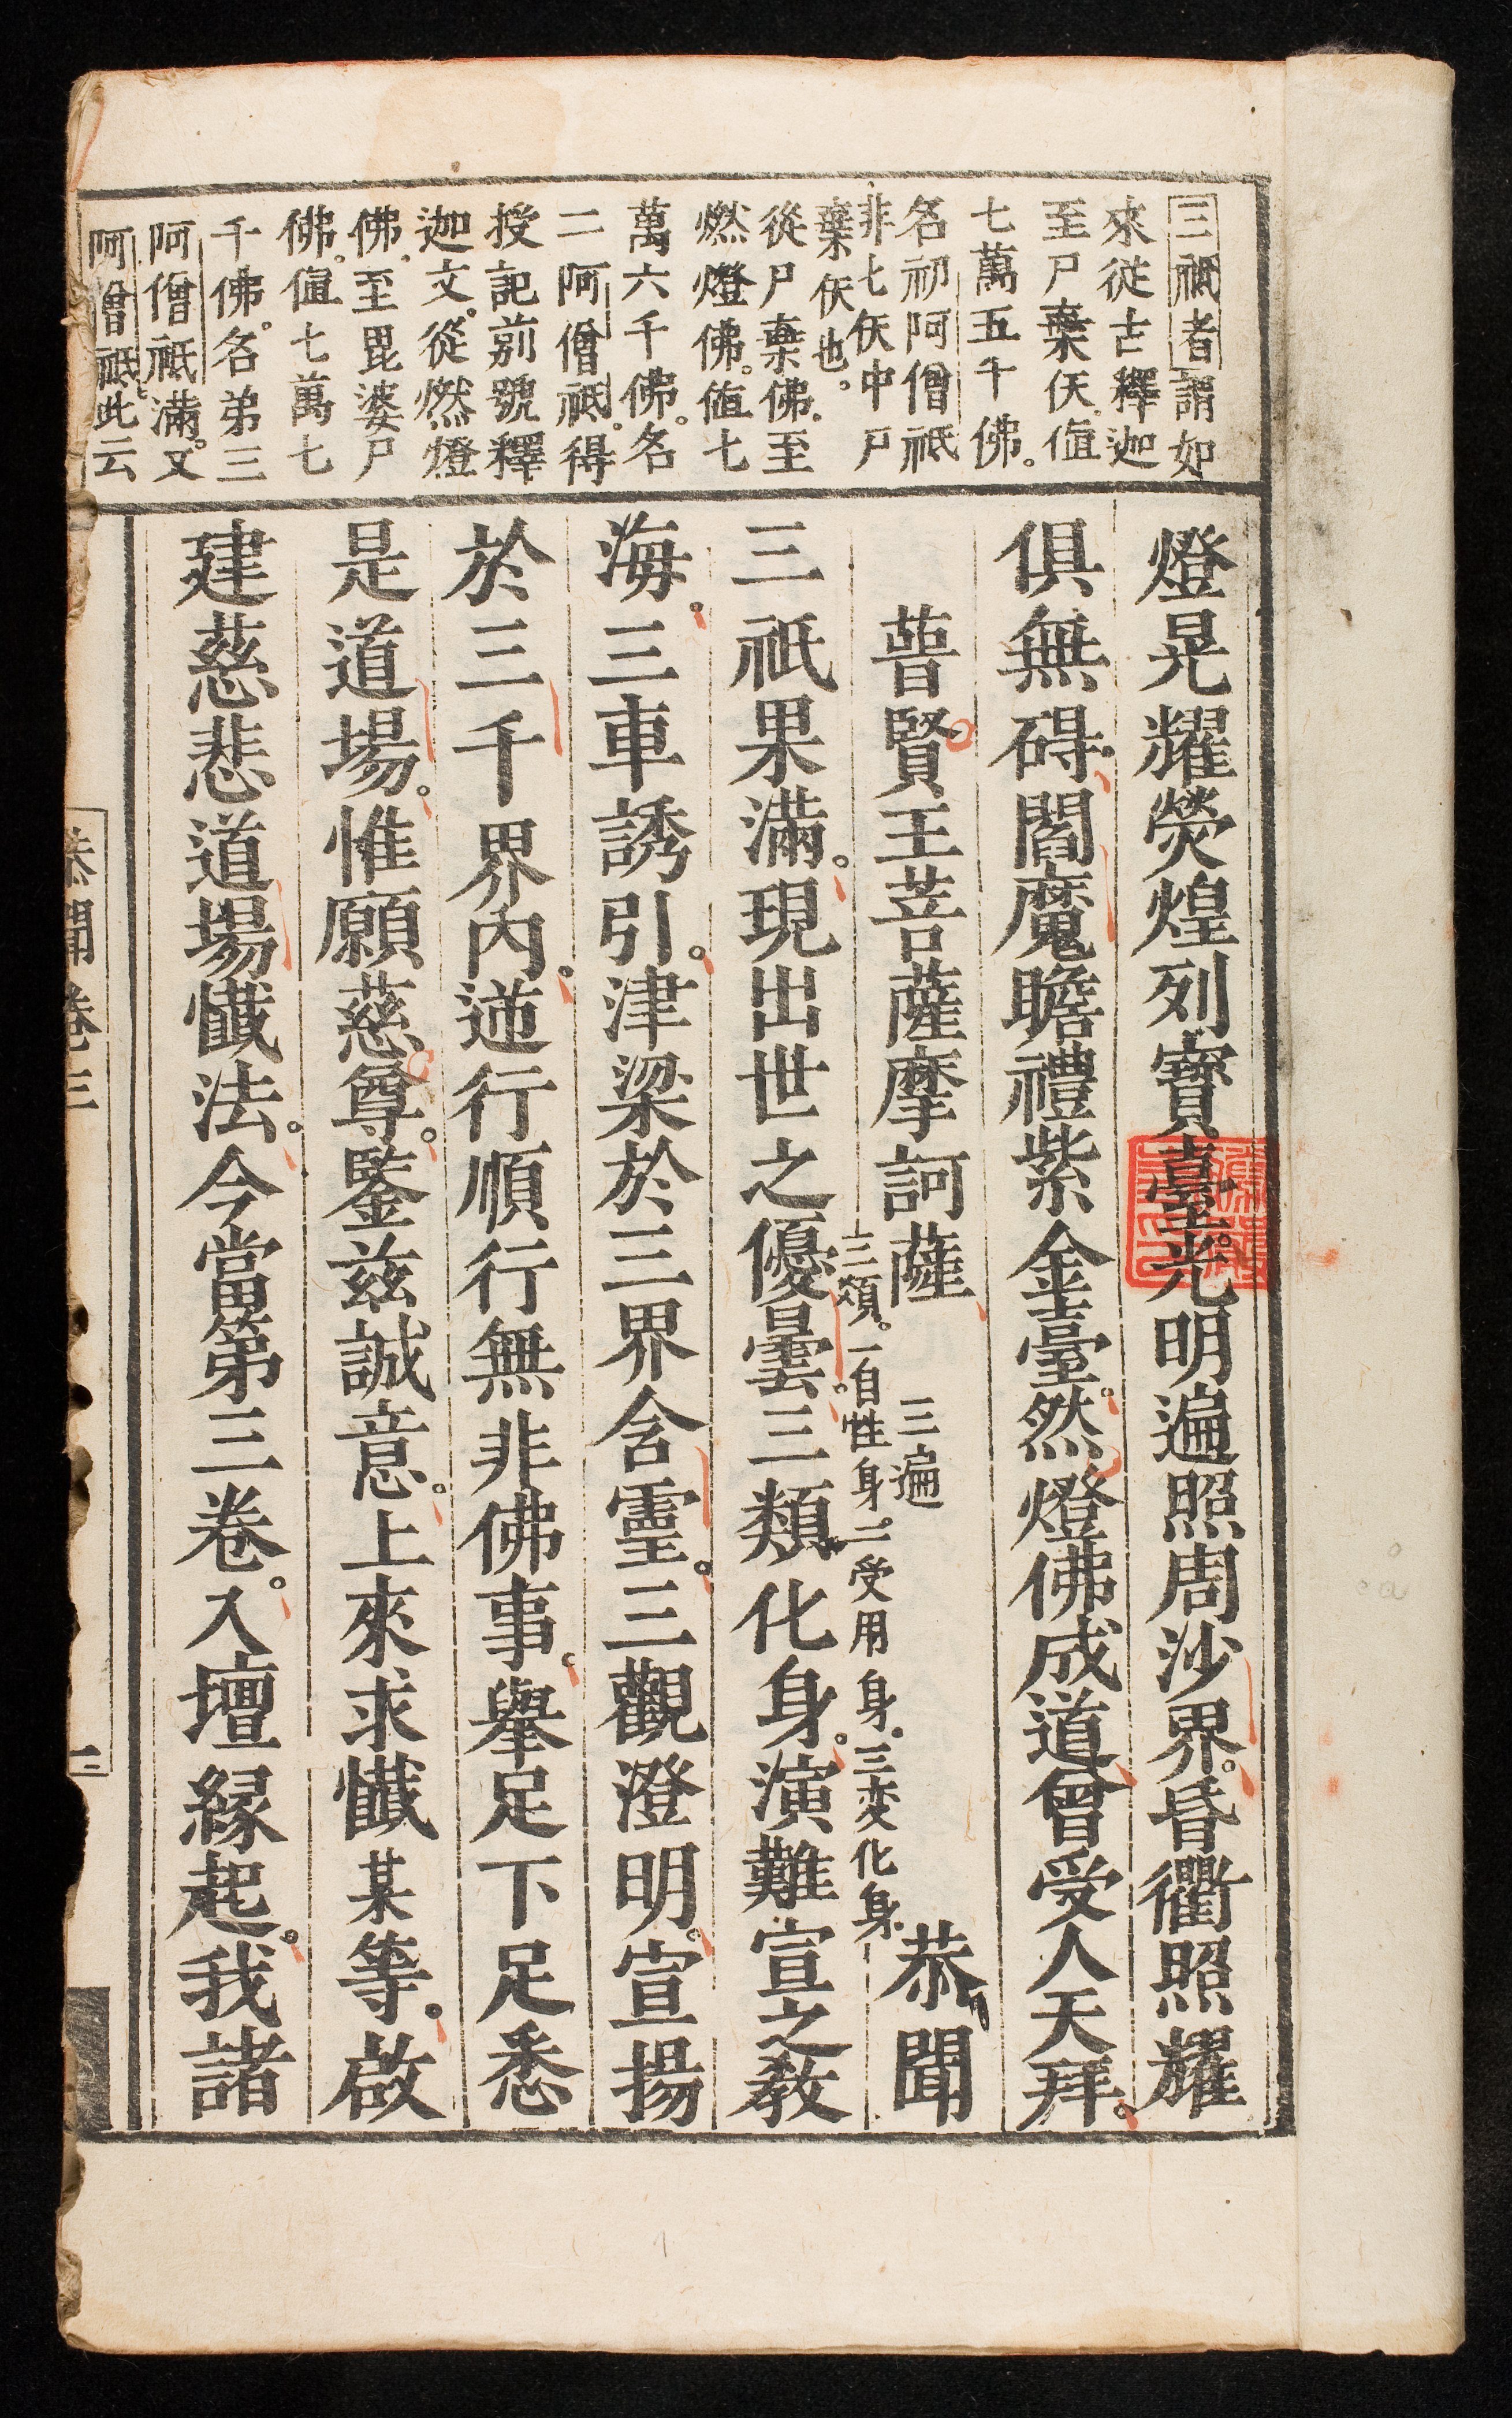 三祇者謂如
來從古釋迦
至尸棄仸値
七萬五千佛。
名初阿僧祇
非七仸中尸
棄仸也。
從尸棄佛至
燃燈佛。値七
萬六千佛。名
二阿僧祇。得
授記前號釋
迦文。從燃燈
佛至毘婆尸
佛。値七萬七
千佛。名弟三
阿僧祇滿。又
阿僧祇此云
燈晃耀熒煌列寶臺。光明遍照周沙界。昏衢照耀
俱無碍。閻魔瞻禮紫金臺。然燈佛成道曾受人天拜。
普賢王菩薩摩訶薩 三遍 恭聞
三類。一自性身。二受用身。三変化身
三祇果滿。現出世之優曇。三類化身。演難宣之教
海。三車誘引。津梁於三界含靈。三觀澄明。宣揚
於三千界內。逆行順行無非佛事。舉足下足悉
是道場。惟願慈尊。鑒茲誠意。上來求懺某等。啟
建慈悲道場懺法。今當第三卷。入壇緣起。我諸
卷三
三